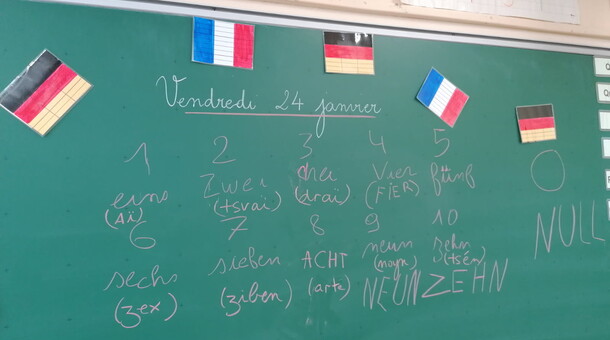 Vendredi 24 janvier
1 2 3 4 5
eins Zwei drei Vier fünf 0
(aï) (tsvaï) (draï) (FiER)
6 7 8 9 10 NULL
sechs sieben ACHT neun zehn
(zex) (ziben) (arte) (noyn) (tsén)
NEUNZEHN